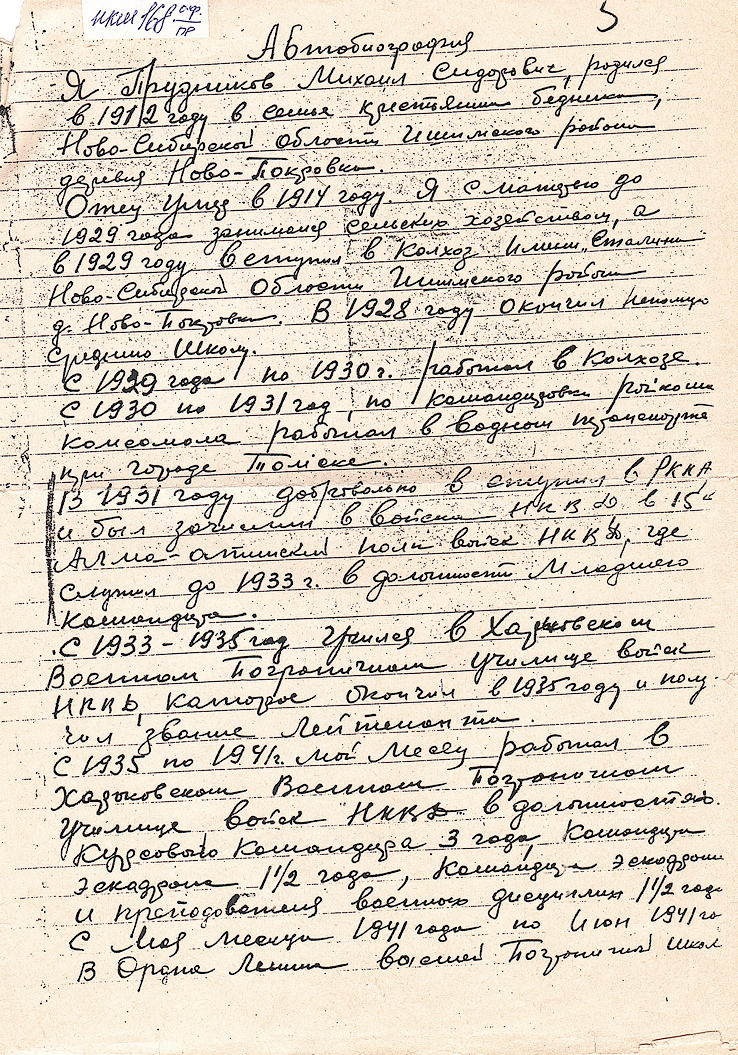 икм 168 оф.
пр
5
Автобиография
Я Прудников Михаил Сидорович, родился
в 1912 году в семье крестьянина бедняка,
Ново-Сибирской Области Ишимского района
деревня Ново-Покровка.
Отец умер в 1914 году. Я с матерью до
1929 года занимался сельским хозяйством, а
в 1929 году вступил в Колхоз имени "Сталина
Ново-Сибирской Области Ишимского района
д. Ново-Покровка. В 1928 году окончил неполную
среднюю школу.
С 1929 года по 1930 г. работал в Колхозе.
С 1930 по 1931 год, по командировки райкома
комсомола работал в водном транспорте
при городе Томске.
В 1931 году добровольно вступил в РККА
и был зачислен в войска НКВД в 15"
Алма-атинский полк войск НКВД, где
служил до 1933 г. в должности младшего
командира.
С 1933-1935 год учился в Харьковском
Военном Пограничном училище войск
НКВД, которое окончил в 1935 году и полу-
чил звание Лейтенанта.
С 1935 по 1941 г. май месяц работал в
Харьковском Военном Пограничном
училище войск НКВД в должностях.
Курсового командира 3 года, Командира
эскадрона 1 1/2 года, Командира эскадрона
и преподавателя военных дисциплин 1 1/2 года
С мая месяца 1941 года по Июн 1941 го
В Ордена Ленина высшей Пограничной Школ